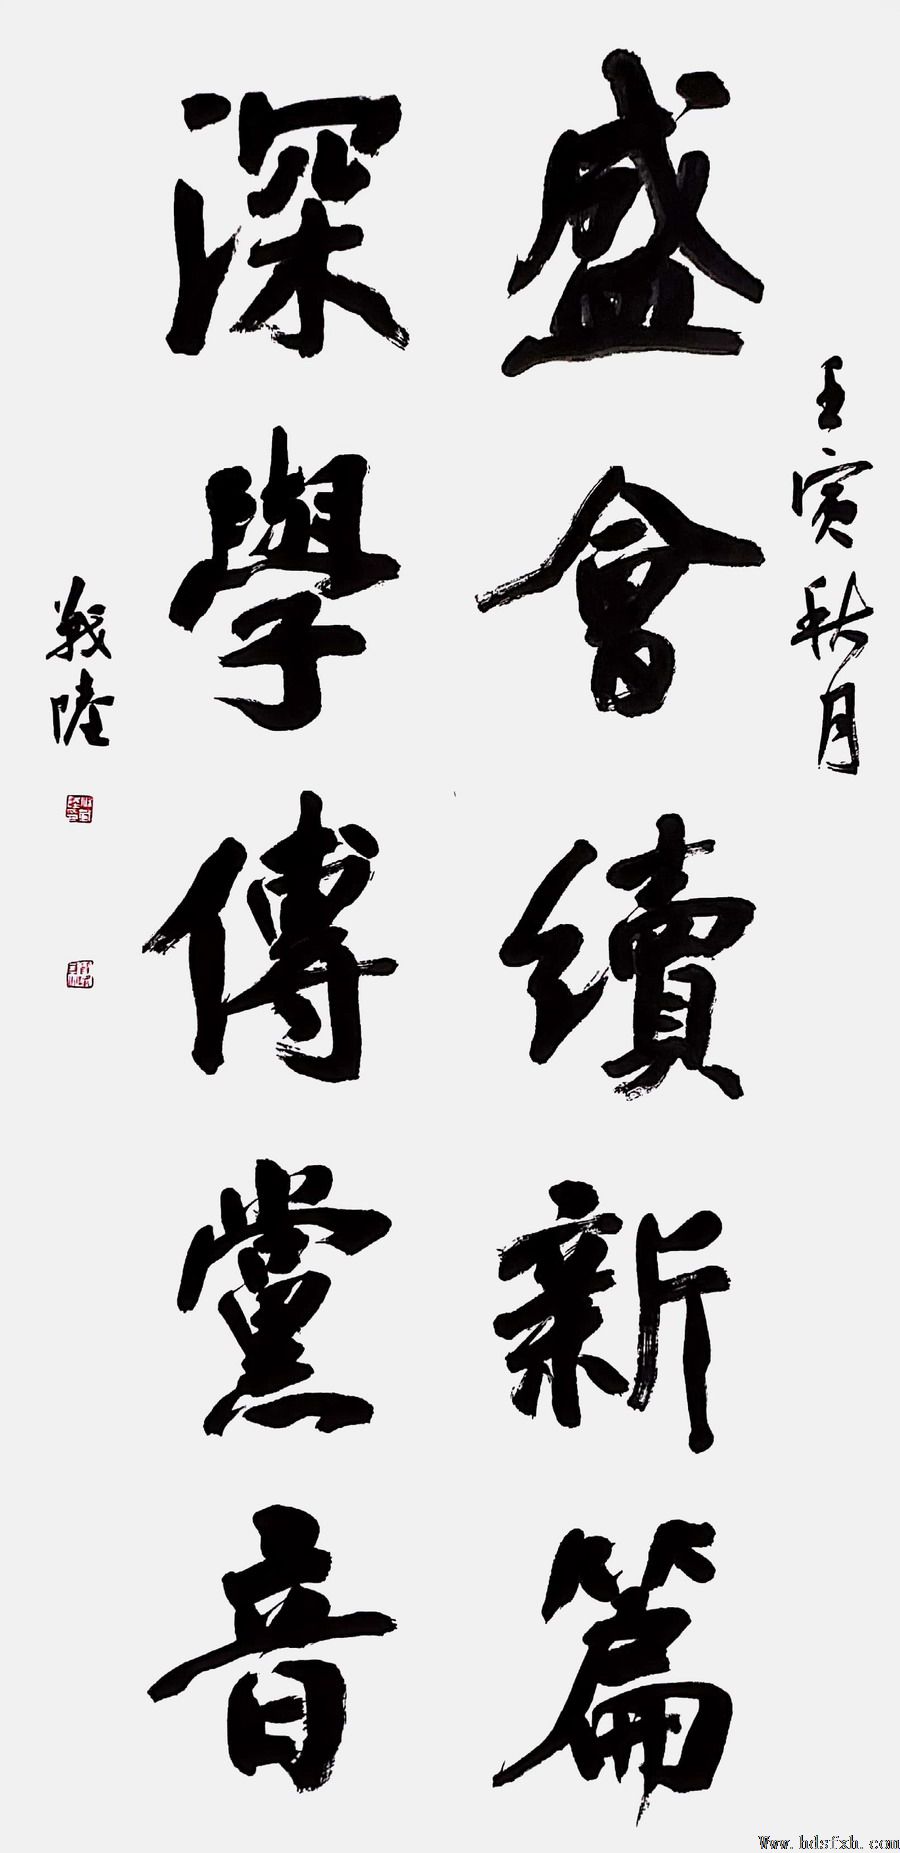 壬寅秋月
盛會續新篇
深學傳黨音
戰陸
Www.hdsfxh.com